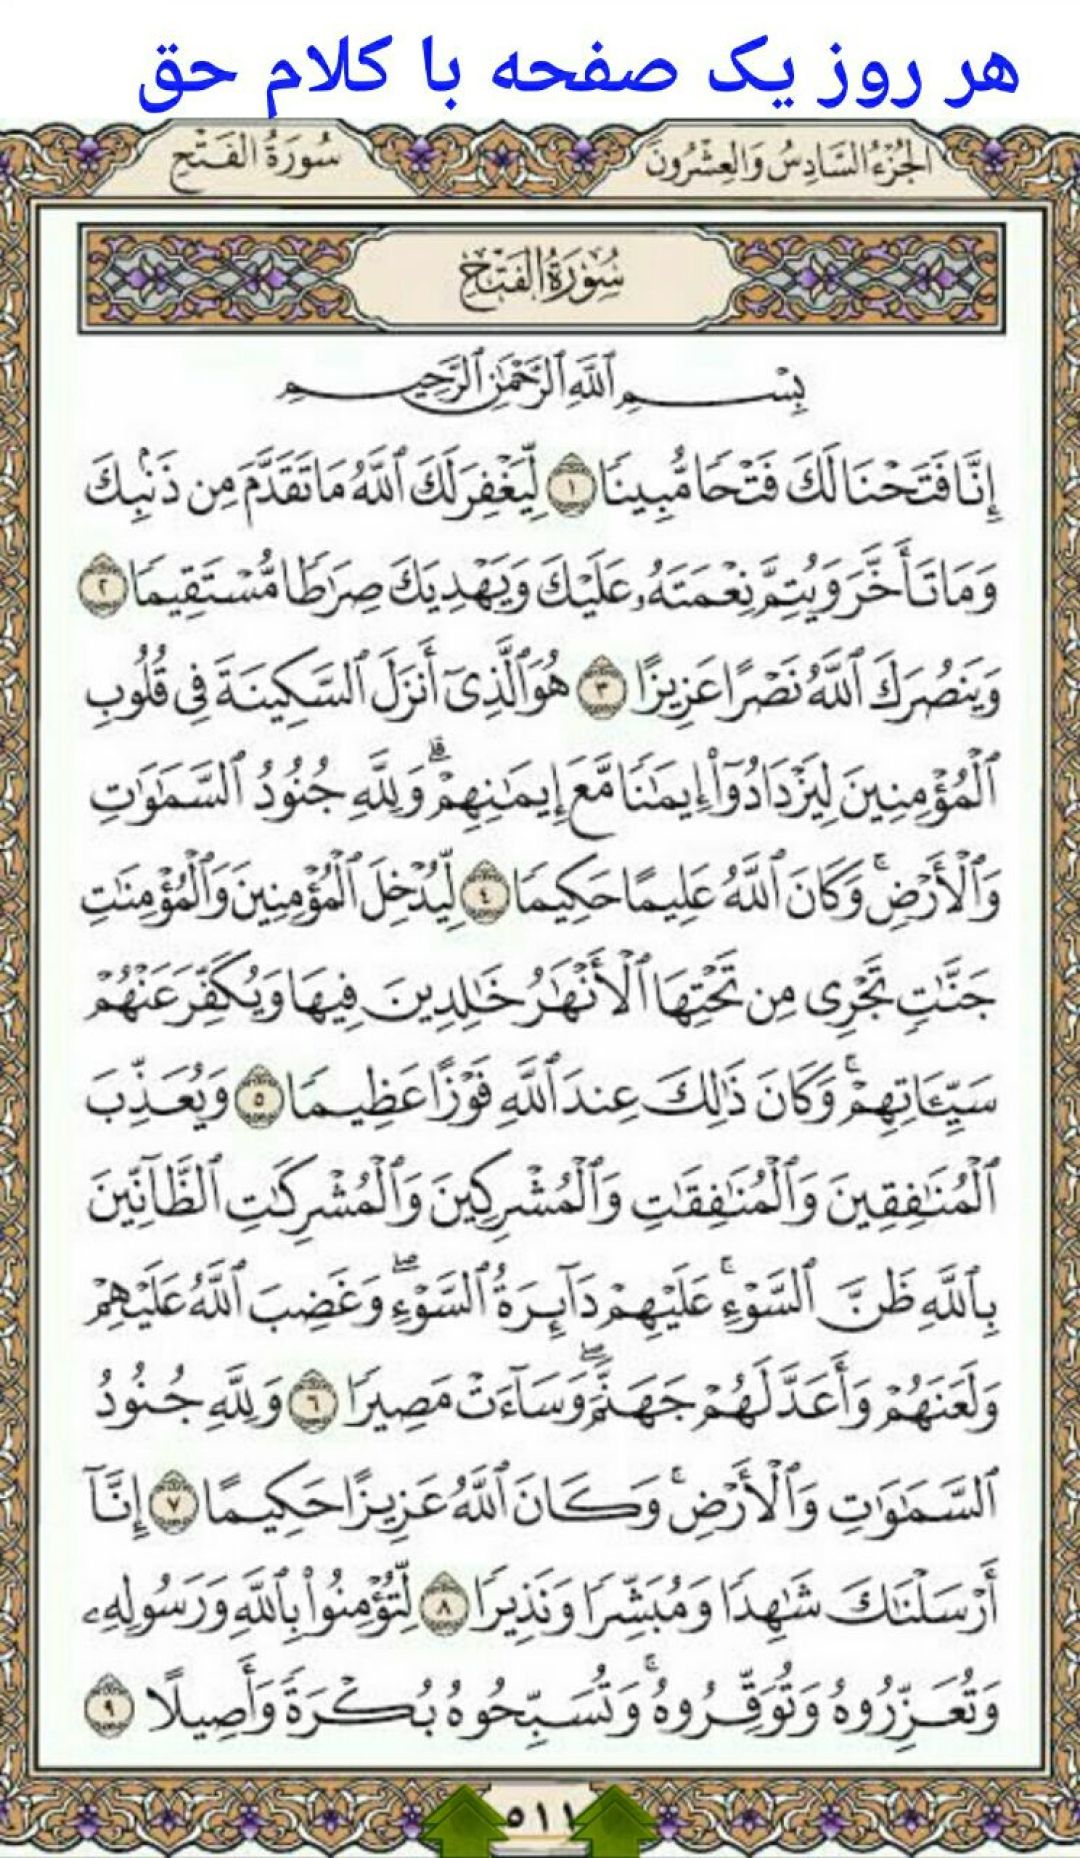 هر روز یک صفحه با کلام حق
الجُزْءُ السَّادِسُ وَالعِشْرُونَ
سُورَةُ الفَتْحِ
سُورَةُ الفَتْحِ
بِسْمِ ٱللَّهِ ٱلرَّحْمَٰنِ ٱلرَّحِيمِ
إِنَّا فَتَحْنَا لَكَ فَتْحًا مُّبِينًا ١ لِّيَغْفِرَ لَكَ ٱللَّهُ مَا تَقَدَّمَ مِن ذَنۢبِكَ
وَمَا تَأَخَّرَ وَيُتِمَّ نِعْمَتَهُۥ عَلَيْكَ وَيَهْدِيَكَ صِرَٰطًا مُّسْتَقِيمًا ٢
وَيَنصُرَكَ ٱللَّهُ نَصْرًا عَزِيزًا ٣ هُوَ ٱلَّذِىٓ أَنزَلَ ٱلسَّكِينَةَ فِى قُلُوبِ
ٱلْمُؤْمِنِينَ لِيَزْدَادُوٓا۟ إِيمَٰنًا مَّعَ إِيمَٰنِهِمْ ۗ وَلِلَّهِ جُنُودُ ٱلسَّمَٰوَٰتِ
وَٱلْأَرْضِ ۚ وَكَانَ ٱللَّهُ عَلِيمًا حَكِيمًا ٤ لِّيُدْخِلَ ٱلْمُؤْمِنِينَ وَٱلْمُؤْمِنَٰتِ
جَنَّٰتٍ تَجْرِى مِن تَحْتِهَا ٱلْأَنْهَٰرُ خَٰلِدِينَ فِيهَا وَيُكَفِّرَ عَنْهُمْ
سَيِّـَٔاتِهِمْ ۚ وَكَانَ ذَٰلِكَ عِندَ ٱللَّهِ فَوْزًا عَظِيمًا ٥ وَيُعَذِّبَ
ٱلْمُنَٰفِقِينَ وَٱلْمُنَٰفِقَٰتِ وَٱلْمُشْرِكِينَ وَٱلْمُشْرِكَٰتِ ٱلظَّآنِّينَ
بِٱللَّهِ ظَنَّ ٱلسَّوْءِ ۚ عَلَيْهِمْ دَآئِرَةُ ٱلسَّوْءِ ۖ وَغَضِبَ ٱللَّهُ عَلَيْهِمْ
وَلَعَنَهُمْ وَأَعَدَّ لَهُمْ جَهَنَّمَ ۖ وَسَآءَتْ مَصِيرًا ٦ وَلِلَّهِ جُنُودُ
ٱلسَّمَٰوَٰتِ وَٱلْأَرْضِ ۚ وَكَانَ ٱللَّهُ عَزِيزًا حَكِيمًا ٧ إِنَّآ
أَرْسَلْنَٰكَ شَٰهِدًا وَمُبَشِّرًا وَنَذِيرًا ٨ لِّتُؤْمِنُوا۟ بِٱللَّهِ وَرَسُولِهِۦ
وَتُعَزِّرُوهُ وَتُوَقِّرُوهُ ۚ وَتُسَبِّحُوهُ بُكْرَةً وَأَصِيلًا ٩
٥١١